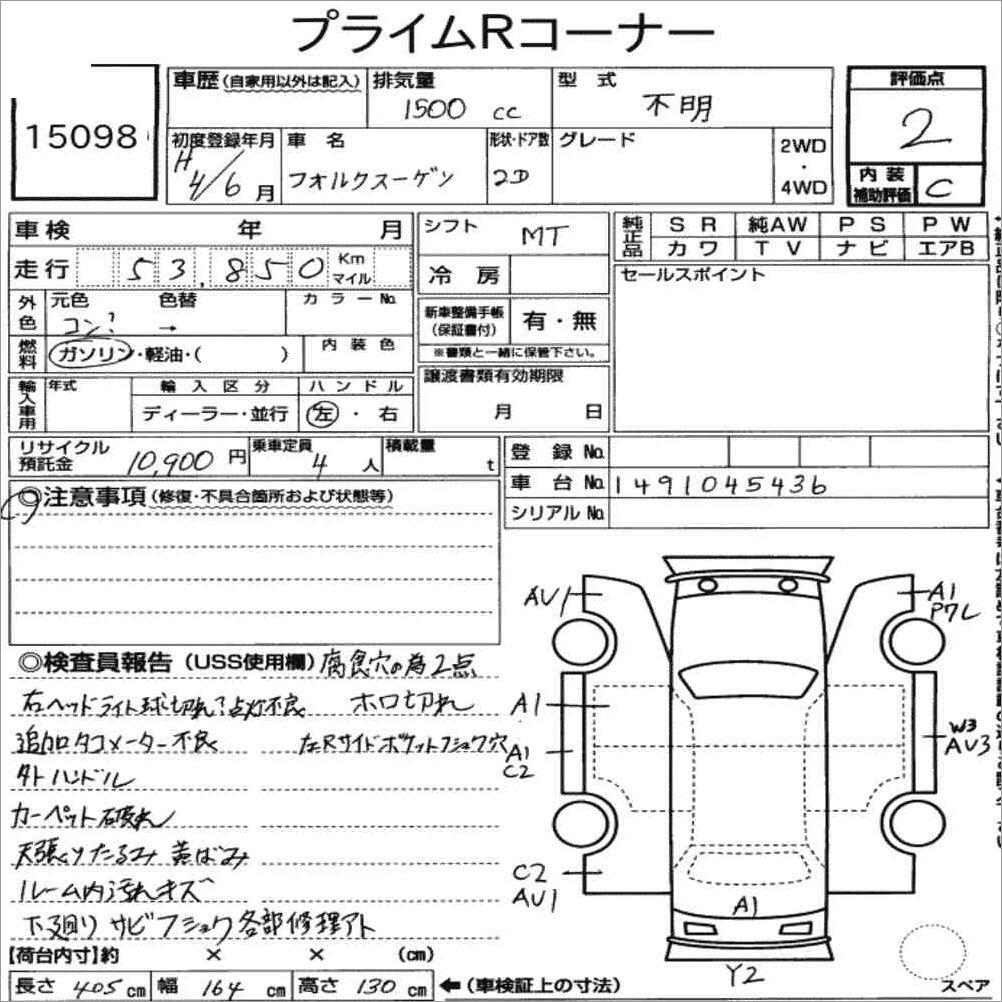 プライムRコーナー
15098
車歴 (自家用以外は記入)
排気量
1500 cc
型 式
不明
評価点
2
初度登録年月
H 4/6 月
車 名
フォルクスーゲン
形状・ドア数
2D
グレード
2WD
・
4WD
内 装
補助評価
C
車検 年 月
シフト
MT
純正品
S R 純AW P S P W
カ ワ T V ナ ビ エアB
走行 53,850 Km マイル
冷 房
セールスポイント
外色
元色 色替
コン? →
カ ラ ー No.
新車整備手帳
(保証書付)
有・無
※書類と一緒に保管下さい。
燃料
ガソリン・軽油・( )
内 装 色
譲渡書類有効期限
月 日
輸入車用
年式
輸 入 区 分
ディーラー・並行
ハ ン ド ル
左 ・ 右
リサイクル
預託金
10,900 円
乗車定員
4 人
積載量
t
登 録 No.
車 台 No. 1491045436
シリアル No.
◎注意事項 (修復・不具合箇所および状態等)
◎検査員報告 (USS使用欄) 腐食穴の為2点
右ヘッドライト球切れ?点灯不良 ホロ切れ
追加タコメーター不良 左Rサイドポケットフショク穴
外ハンドル
カーペット破れ
天張りたるみ 黄ばみ
ルーム内汚れキズ
下廻り サビフショク各部修理アト
AV1
A1
P7L
A1
A1
C2
W3
AV3
C2
AV1
A1
Y2
スペア
【荷台内寸】約 × × (cm)
長さ 405 cm 幅 164 cm 高さ 130 cm ←(車検証上の寸法)